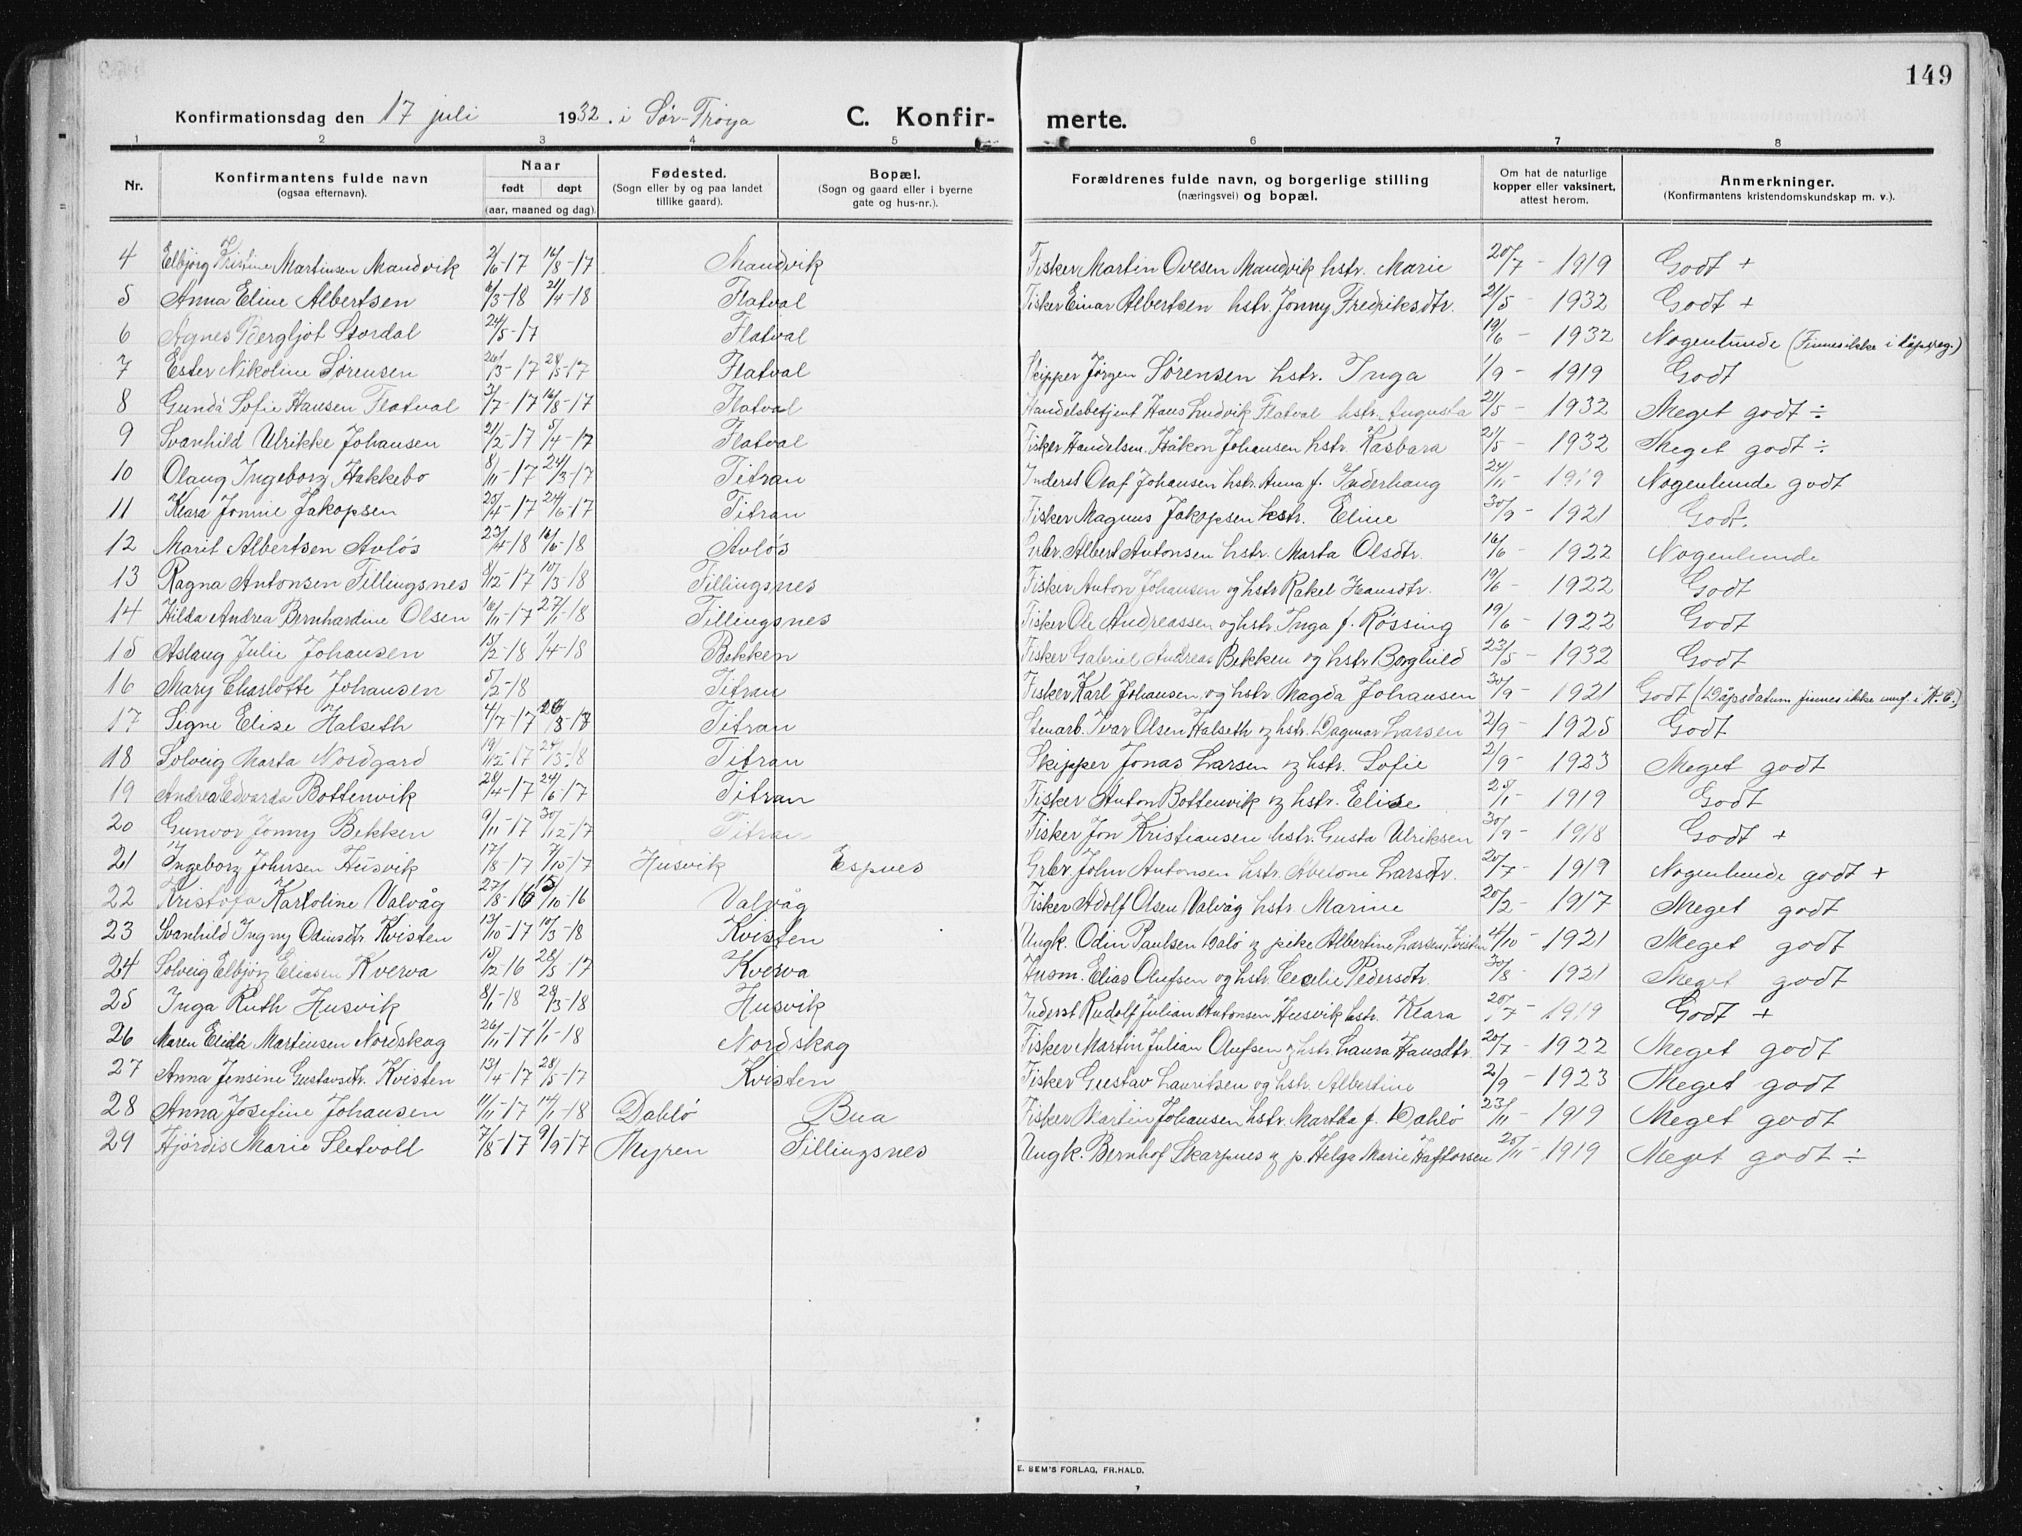 149
Konfirmationsdag den 17 juli 1932. i Sør-Frøya C. Konfir- merte.
1 2 3 4 5 6 7 8
Nr. Konfirmantens fulde navn (ogsaa efternavn). Naar født døpt (aar, maaned og dag). Fødested. (Sogn eller by og paa landet tillike gaard). Bopæl. (Sogn og gaard eller i byerne gate og hus-nr.). Forældrenes fulde navn, og borgerlige stilling (næringsvei) og bopæl. Om hat de naturlige kopper eller vaksinert, attest herom. Anmerkninger. (Konfirmantens kristendomskundskap m. v.).
4 Elbjörg Kristine Martinsen Mandvik 2/6-17 16/8-17 Mandvik Fisker Martin Ovesen Mandvik hstr. Marie 20/7 - 1919 Godt +
5 Anna Eline Albertsen 6/3-18 21/4-18 Flatval Fisker Einar Albertsen hstr. Jonny Fredriksdtr. 21/5 - 1932 Godt +
6 Agnes Bergljot Stordal 24/5-17 Flatval 19/6 - 1932 Nogenlunde (Finnes ikke i dåpsreg.)
7 Ester Nikoline Sørensen 26/3-17 28/5-17 Flatval Skipper Jörgen Sørensen hstr. Inga 1/9 - 1919 Godt
8 Gunda Sofie Hansen Flatval 3/7-17 16/8-17 Flatval Handelsbetjent Hans Ludvik Flatval hstr. Augusta 21/5 - 1932 Meget godt ÷
9 Svanhild Ulrikke Johansen 21/2-17 5/4-17 Flatval Fisker Handelsm. Håkon Johansen hstr. Kasbara 21/5 - 1932 Meget godt ÷
10 Olaug Ingeborg Hakkebo 8/11-17 24/3-17 Titran Inderst Olaf Johansen hstr. Anna f. Inderhaug 24/11 - 1919 Nogenlunde godt
11 Klara Jonnie Jakopsen 25/4-17 24/6-17 Titran Fisker Magnus Jakopsen hstr. Eline 30/9 - 1921 Godt.
12 Marit Albertsen Avlös 23/4-18 16/6-18 Avlös Grbr. Albert Antonsen hstr. Marta Olsdtr. 16/6 - 1922 Nogenlunde
13 Ragna Antonsen Fillingsnes 8/12-17 10/3-18 Fillingsnes Fisker Anton Johansen og hstr Rakel Hansdtr. 19/6 - 1922 Godt
14 Hilda Andrea Bernhardine Olsen 16/11-17 27/1-18 Fillingsnes Fisker Ole Andreassen og hstr. Inga f. Røssing 19/6 - 1922 Godt
15 Aslaug Julie Johansen 15/2-18 1/4-18 Bekken Fisker Gabriel Andreas Bekken og hstr Borghild 23/5 - 1932 Godt
16 Mary Charlotte Johansen 5/2-18 Titran Fisker Karl Johansen og hstr Magda Johansen 30/9 - 1921 Godt (Dåpsdatum finnes ikke innf. i K.B.)
17 Signe Elise Halseth 4/7-17 26/8-17 Titran Stenarb. Ivar Olsen Halseth og hstr. Dagmar Larsen 2/9 - 1925 Godt
18 Solveig Marta Nordgard 19/12-17 24/3-18 Titran Skipper Jonas Larsen og hstr. Sofie 2/9 - 1923 Meget godt
19 Andrea Edvarda Bottenvik 28/4-17 24/6-17 Titran Fisker Anton Bottenvik og hstr. Elise 28/1 - 1919 Godt
20 Gunvor Jonny Bekken 9/11-17 30/12-17 Titran Fisker Jon Kristiansen hstr. Gusta Ulriksen 30/9 - 1918 Godt +
21 Ingeborg Johnsen Husvik 17/8-17 7/10-17 Husvik Espnes Grbr. John Antonsen hstr. Abelone Larsdtr. 20/7 - 1919 Nogenlunde godt +
22 Kristofa Karoline Valvåg 27/8-16 15/10-16 Valvåg Fisker Adolf Olsen Valvåg hstr. Marine 20/2 - 1917 Meget godt
23 Svanhild Ingny Odinsdtr. Kvisten 13/10-17 10/3-18 Kvisten Ungk. Odin Paulsen Dalö og pike Albertine Larsen Kvisten 4/10 - 1921 Meget godt
24 Solveig Elbjörg Eliasen Kverva 15/12-16 28/5-17 Kverva Husm. Elias Olufsen og hstr. Cecelie Pedersdtr. 30/8 - 1921 Meget godt
25 Inga Ruth Husvik 8/1-18 28/3-18 Husvik Inderst Rudolf Julian Antonsen Husvik hstr. Klara 20/7 - 1919 Godt +
26 Maren Elida Martinsen Nordskag 26/11-17 1/1-18 Nordskag Fisker Martin Julian Olufsen og hstr. Laura Hansdtr. 20/7 - 1922 Meget godt
27 Anna Jensine Gustavsdtr. Kvisten 13/4-17 28/5-17 Kvisten Fisker Gustav Lauritsen og hstr. Albertine 2/9 - 1923 Meget godt
28 Anna Josefine Johansen 11/11-17 14/1-18 Dahlö Bua Fisker Martin Johansen hstr. Martha f. Dahlö 23/11 - 1919 Meget godt
29 Hjördis Marie Sletvoll 7/8-17 9/9-17 Myren Fillingsnes Ungk. Bernhof Skarpnes og p. Helga Marie Haftorsen 20/11 - 1919 Meget godt ÷
E. SEM'S FORLAG, FR.HALD.